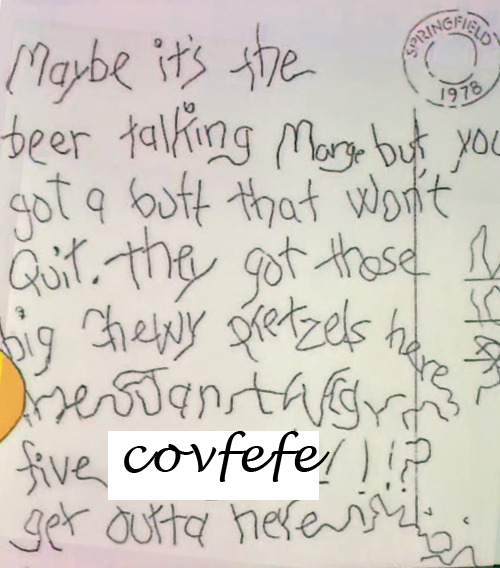 SPRINGFIELD
1978
Maybe it's the
beer talking Marge but you
got a butt that won't
Quit. they got those
big chewy pretzels here
five covfefe!!!?
get outta here